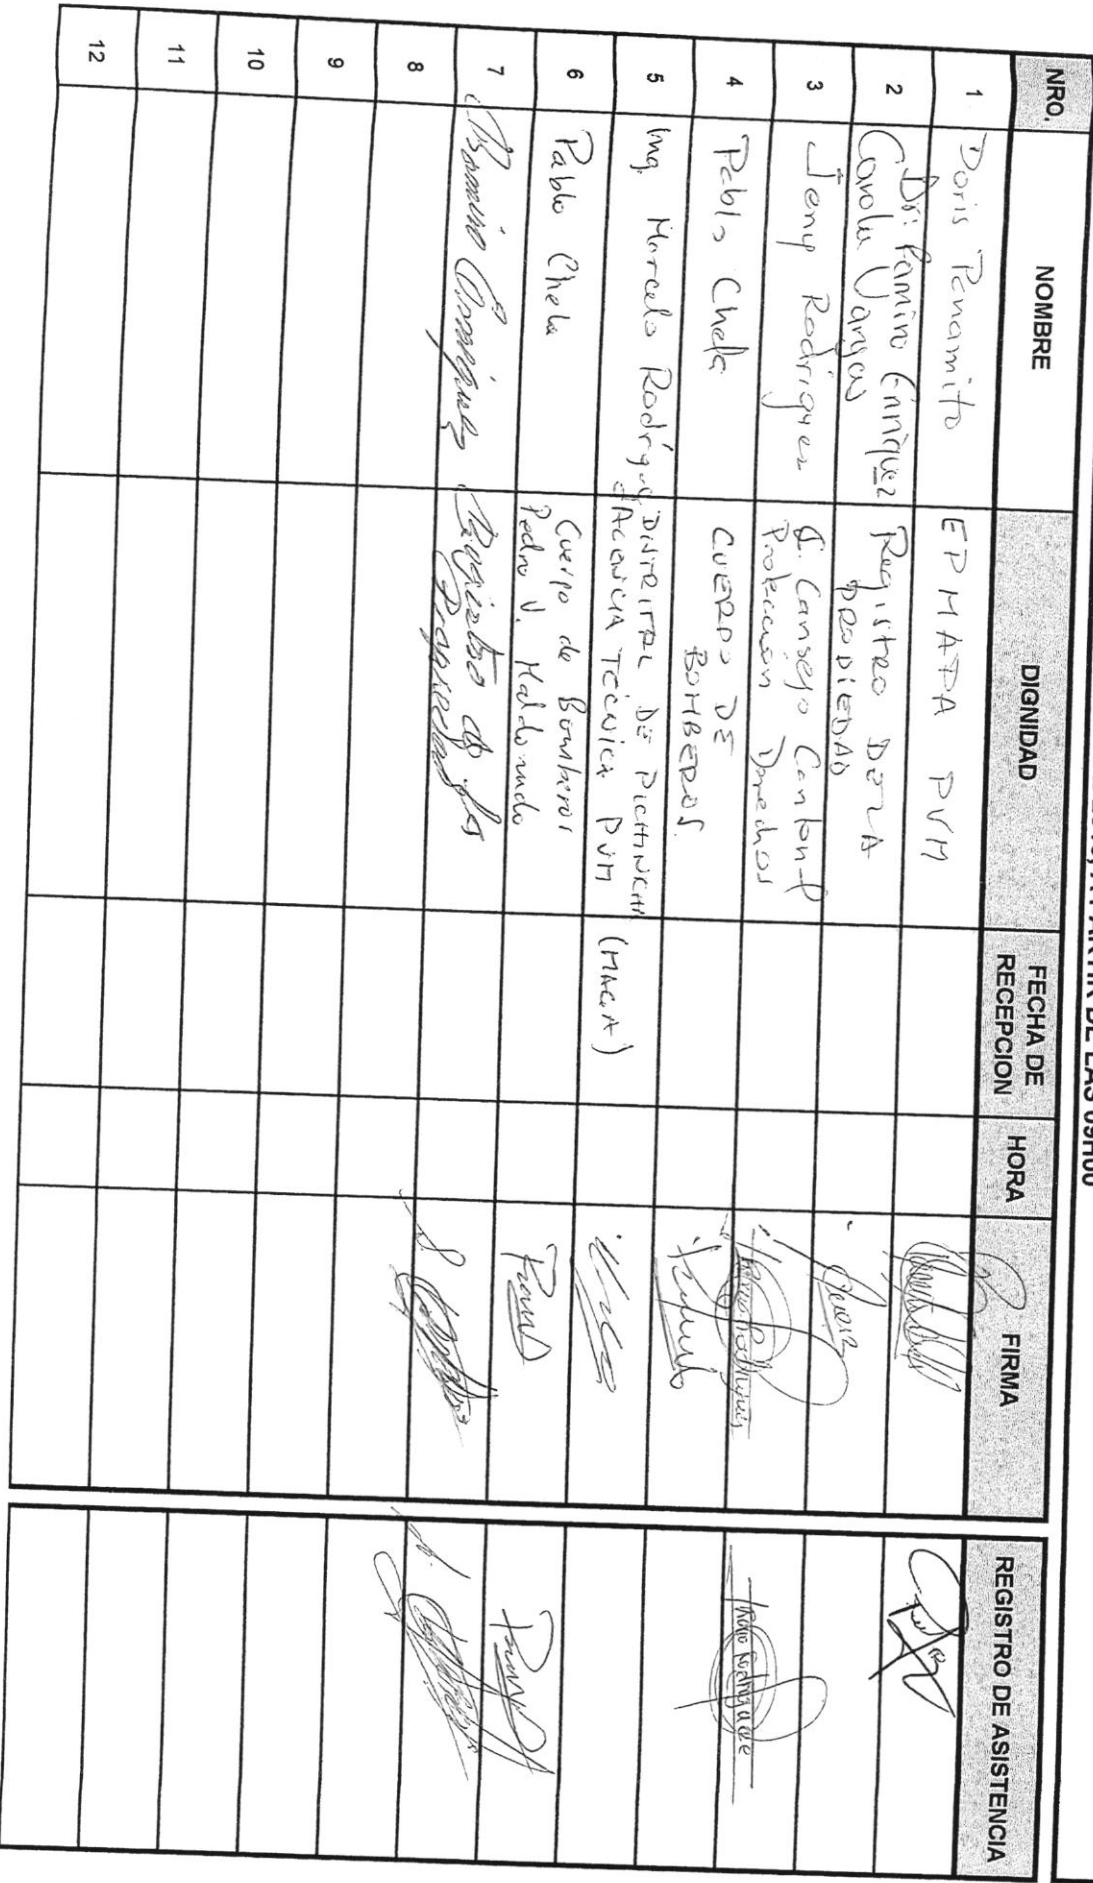 A PARTIR DE LAS 09H00
NRO. NOMBRE DIGNIDAD FECHA DE RECEPCION HORA FIRMA REGISTRO DE ASISTENCIA
1 Doris Penamito EPMAPA PVM
2 Dr. Ramiro Enríquez
Carola Vargas Registro DE LA
PROPIEDAD
3 Jeny Rodriguez C. Consejo Cantonal
Protección Derechos
4 Pablo Chela CUERPO DE
BOMBEROS.
5 Ing. Marcelo Rodríguez DISTRITAL DE PICHINCHA
AGENCIA TECNICA PVM (MAGA)
6 Pablo Chela Cuerpo de Bomberos
Pedro V. Maldonado
7 Ramiro Enríquez Registro de la
Propiedad
8
9
10
11
12